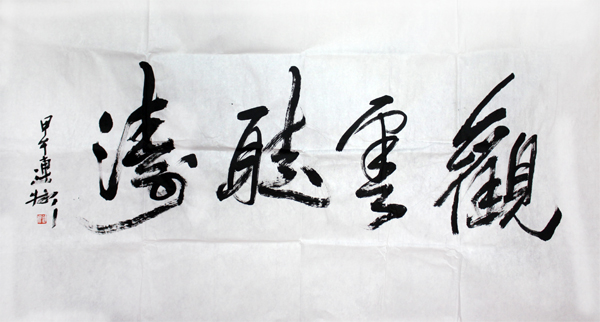 觀雲聽濤
甲午